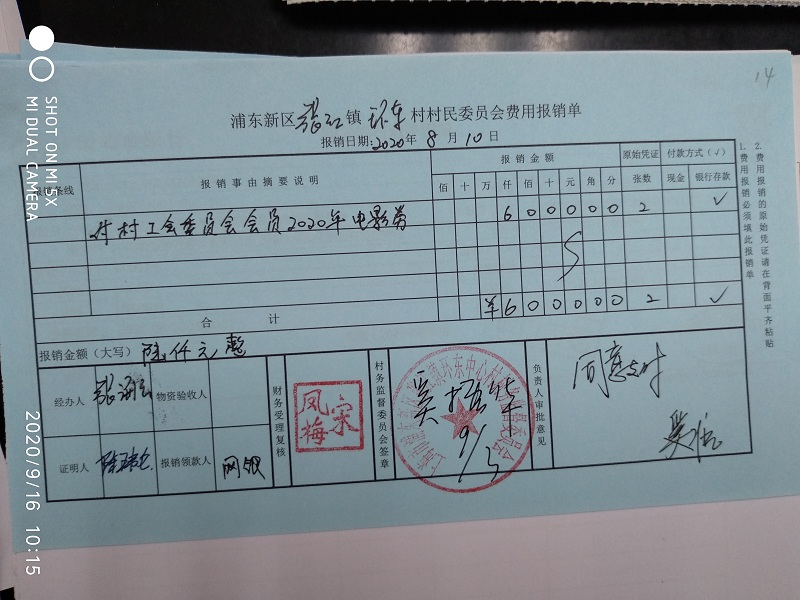 14
浦东新区张江镇环东村村民委员会费用报销单
报销日期:2020年8月10日
报销事由摘要说明 报销金额 原始凭证 付款方式(√)
佰 十 万 仟 佰 十 元 角 分 张数 现金 银行存款
付村工会委员会会员2020年电影券 6 0 0 0 0 0 2 √
合计 ¥ 6 0 0 0 0 0 2 √
报销金额(大写) 陆仟元整
经办人 物资验收人
证明人 报销领款人 网银
财务受理复核
宋凤梅
村务监督委员会签章
9/3
负责人审批意见
同意支付
1.费用报销必须填此报销单
2.费用报销的原始凭证请在背面平齐粘贴
SHOT ON MI MIX
MI DUAL CAMERA
2020/9/16 10:15